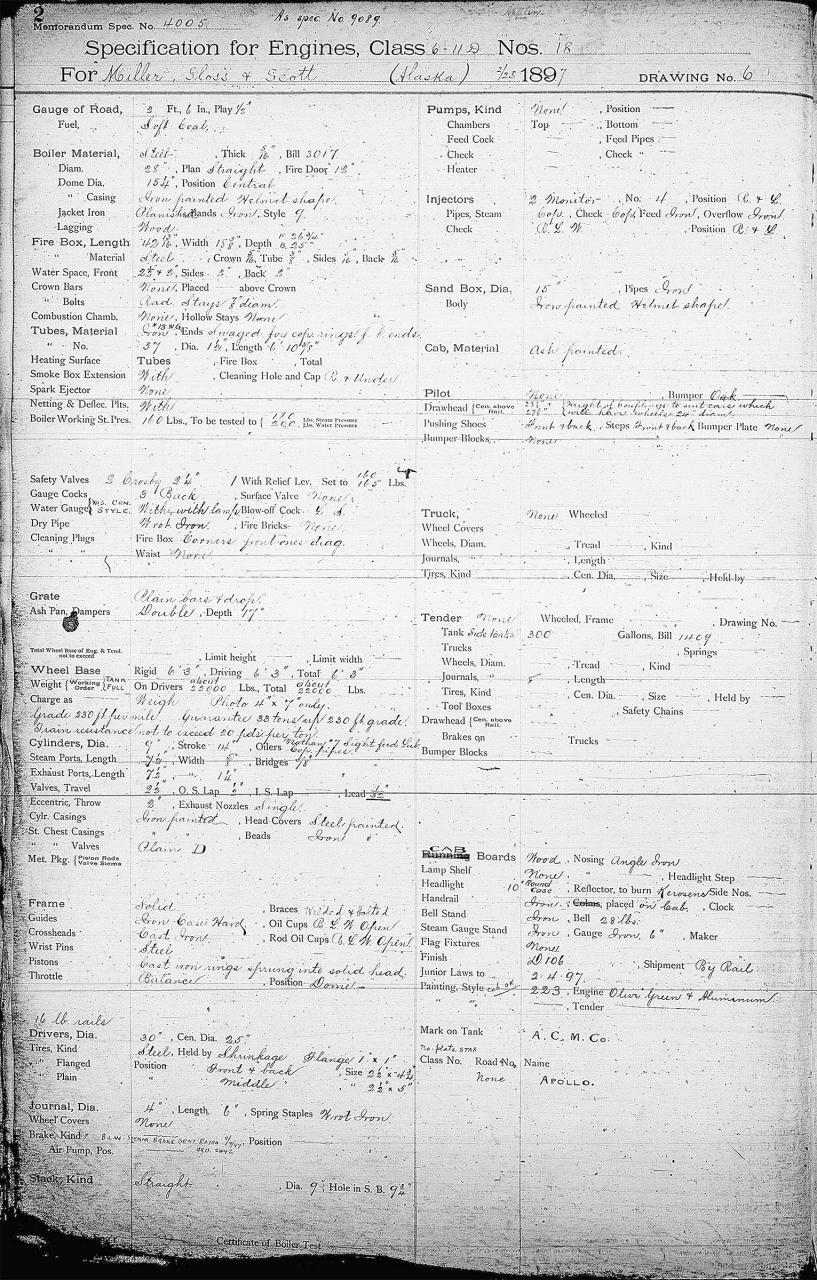 2
Memorandum Spec. No. 4005. As spec. No 9089
Specification for Engines, Class 6-11 D Nos. 18
For Miller, Sloss & Scott (Alaska) 2/25 1897 DRAWING No. 6
Gauge of Road, 2 Ft., 6 In., Play 1/2"
Fuel, Soft Coal.
Boiler Material, Steel, Thick 5/16", Bill 3017
Diam. 28", Plan Straight, Fire Door 12"
Dome Dia. 15 1/4", Position Central
" Casing Iron painted Helmet shape.
Jacket Iron Planished Bands Iron, Style 9.
Lagging Wood.
Fire Box, Length 42 Width 15 Depth
" Material Steel, Crown Tube Sides Back
Water Space, Front Sides 2", Back 2"
Crown Bars None, Placed above Crown
" Bolts Rad. Stays diam.
Combustion Chamb. None, Hollow Stays None
Tubes, Material Iron, Ends Swaged for cop. rings f. b. ends
" No. 57, Dia. 1 1/2", Length 6'
Heating Surface Tubes , Fire Box , Total
Smoke Box Extension With , Cleaning Hole and Cap R. & Under
Spark Ejector None
Netting & Deflec. Plts. With
Boiler Working St. Pres. 160 Lbs., To be tested to { 180 Lbs. Steam Pressure 200 Lbs. Water Pressure
Safety Valves 2 Crosby 2 1/4" 1 With Relief Lev. Set to 160 165 Lbs.
Gauge Cocks 3 Back , Surface Valve None.
Water Gauge { W.S. CEN. STYLE. With, with lamp Blow-off Cock L. S.
Dry Pipe Wrot Iron. , Fire Bricks None.
Cleaning Plugs Fire Box Corners front ones diag.
" " Waist None.
Grate Plain bars & drop.
Ash Pan, Dampers Double, Depth 17"
Total Wheel Base of Eng. & Tend. not to exceed , Limit height , Limit width
Wheel Base Rigid 6' 3", Driving 6' 3", Total 6' 3"
Weight { Working Order { TANK FULL On Drivers about 22000 Lbs., Total about 22000 Lbs.
Charge as Weigh Photo 4" x 7" only.
Grade 230 ft per mile, Guarantee 33 tons up 230 ft grade.
Train resistance not to exceed 20 pds per ton.
Cylinders, Dia. 9", Stroke 14", Oilers Nathan #7 Sight feed Lub. Cop. pipes.
Steam Ports, Length 7 1/2", Width 5/8", Bridges 5/8"
Exhaust Ports, Length 7 1/2", " 1 1/4"
Valves, Travel 2 1/2", O. S. Lap I. S. Lap , Lead
Eccentric, Throw 2", Exhaust Nozzles Single.
Cylr. Casings Iron painted, Head Covers Steel painted.
St. Chest Casings " " , Beads Iron "
" " Valves Plain D
Met. Pkg. { Piston Rods Valve Stems
Frame Solid , Braces Welded & bolted
Guides Iron Case Hard , Oil Cups B. L. W. Open
Crossheads Cast Iron. , Rod Oil Cups B. L. W. Open
Wrist Pins Steel
Pistons Cast iron rings sprung into solid head.
Throttle Balance , Position Dome
16 lb. rails
Drivers, Dia. 30", Cen. Dia. 25"
Tires, Kind Steel, Held by Shrinkage Flange 1" x 1"
" Flanged Position Front & back , Size 2 1/2" x 4 3/4"
" Plain " Middle " 2 1/2" x 5"
Journal, Dia. 4", Length 6", Spring Staples Wrot Iron
Wheel Covers None
Brake, Kind B.L.W. STEAM BRAKE SENT EXTRA , Position
Air Pump, Pos. ORD. 2442
Stack, Kind Straight , Dia. 9", Hole in S. B. 9 3/4"
Certificate of Boiler Test
Pumps, Kind None , Position
Chambers Top , Bottom
Feed Cock , Feed Pipes
Check , Check "
Heater
Injectors 2 Monitor , No. 4, Position R. & L.
Pipes, Steam Cop., Check Cop., Feed Iron, Overflow Iron
Check B. L. W. , Position R. & L.
Sand Box, Dia. 15", Pipes Iron
Body Iron painted Helmet shape.
Cab, Material Ash painted.
Pilot None , Bumper Oak
Drawhead { Cen. above Rail. { Height of couplings to suit cars which will have wheels 24" diam.
Pushing Shoes Front & back, Steps Front & back Bumper Plate None
Bumper Blocks None
Truck, None Wheeled
Wheel Covers
Wheels, Diam. , Tread , Kind
Journals, " , Length
Tires, Kind , Cen. Dia. , Size , Held by
Tender None Wheeled, Frame , Drawing No.
Tank Side tanks 300 Gallons, Bill 1409
Trucks , Springs
Wheels, Diam. , Tread , Kind
Journals, " , Length
Tires, Kind , Cen. Dia. , Size , Held by
Tool Boxes , Safety Chains
Drawhead { Cen. above Rail.
Brakes on Trucks
Bumper Blocks
CAB
Running Boards Wood, Nosing Angle Iron
Lamp Shelf None. " , Headlight Step
Headlight 10" Round Case , Reflector, to burn Kerosene Side Nos.
Handrail Iron, Colms, placed on Cab. , Clock
Bell Stand Iron, Bell 28 lbs.
Steam Gauge Stand Iron, Gauge Iron 6" , Maker
Flag Fixtures None
Finish D 106 , Shipment By Rail
Junior Laws to 2-4-97.
Painting, Style 223, Engine Olive Green & Aluminum
" " , Tender
Mark on Tank A. C. M. Co.
No. plate STAR
Class No. Road No. Name
None APOLLO.